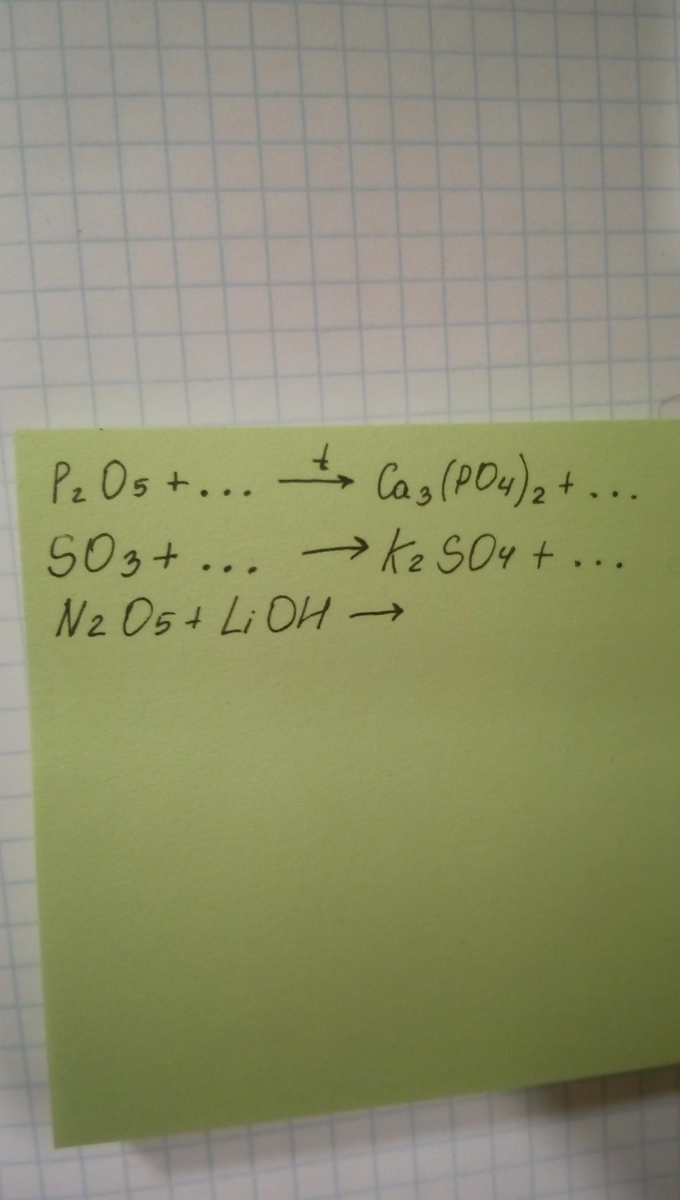 P₂O₅ + ... t→ Ca₃(PO₄)₂ + ...
SO₃ + ... → K₂SO₄ + ...
N₂O₅ + LiOH →